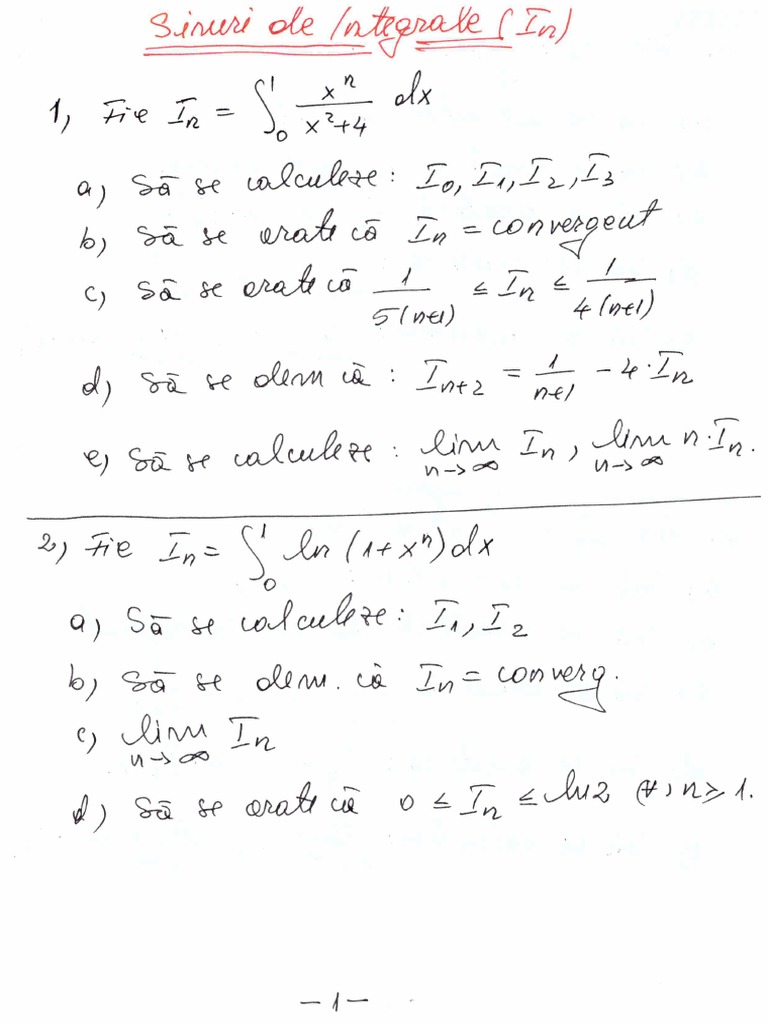 Siruri de Integrale (In)
1) Fie In = ∫₀¹ xⁿ/(x²+4) dx
a) Să se calculeze: I₀, I₁, I₂, I₃
b) Să se arate că In = convergent
c) Să se arate că 1/5(n+1) ≤ In ≤ 1/4(n+1)
d) Să se dem că: Iₙ₊₂ = 1/(n+1) - 4·In
e) Să se calculeze: lim n→∞ In, lim n→∞ n·In.
2) Fie In = ∫₀¹ ln(1+xⁿ)dx
a) Să se calculeze: I₁, I₂
b) Să se dem. că In = converg.
c) lim n→∞ In
d) Să se arate că 0 ≤ In ≤ ln2 (∀) n ≥ 1.
-1-